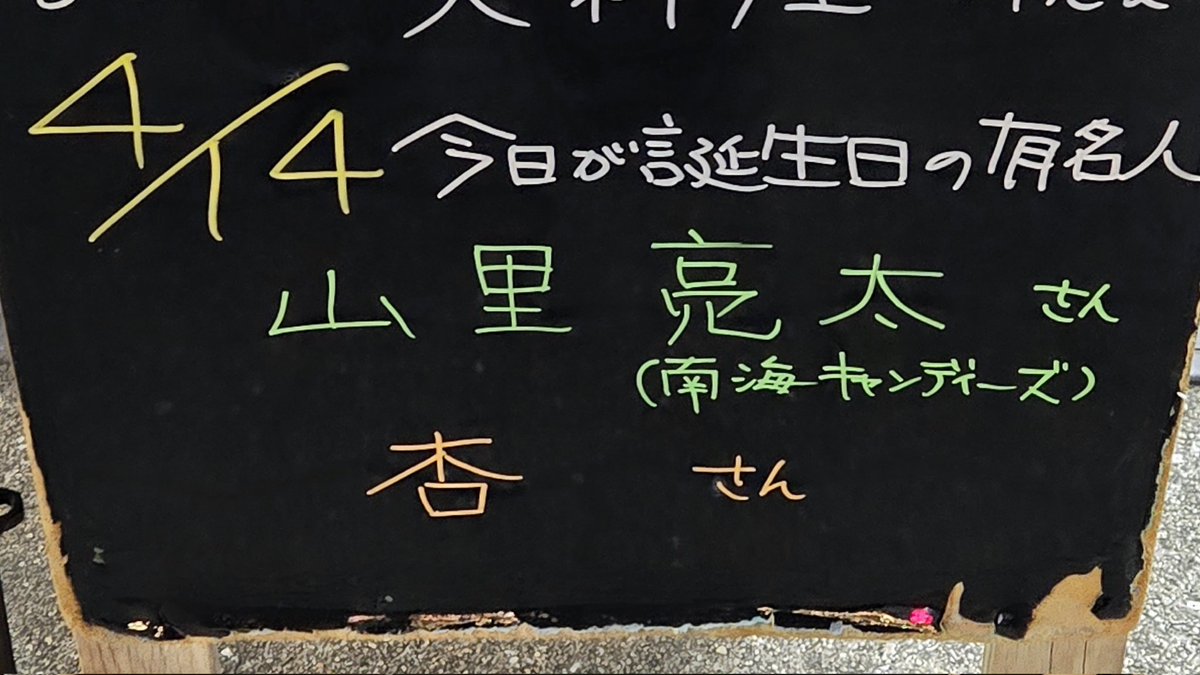 4/14 今日が誕生日の有名人
山里亮太 さん
(南海キャンディーズ)
杏 さん